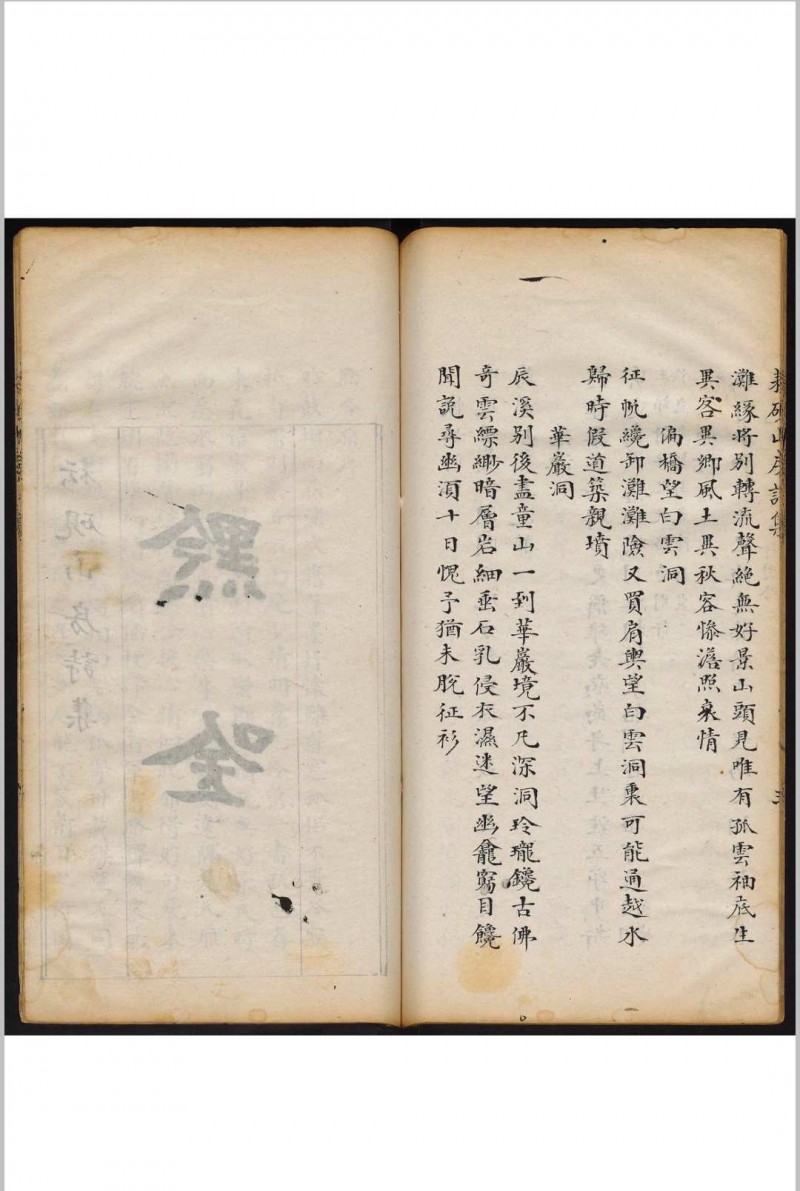 耘硯山房詩集
灘緣将别轉流聲絶無好景山頭見唯有孤雲袖底生
異客異鄉風土異秋容慘澹照衷情
偏橋望白雲洞
征帆纔卸灘灘險又買肩輿望白雲洞裏可能通越水
歸時假道築親墳
華巖洞
辰溪别後盡童山一到華巖境不凡深洞玲瓏鑱古佛
奇雲縹緲暗層岩細垂石乳侵衣濕迷望幽龕窮目饞
聞說尋幽湏十日愧予猶未脫征衫
黔吟
耘硯山房詩集